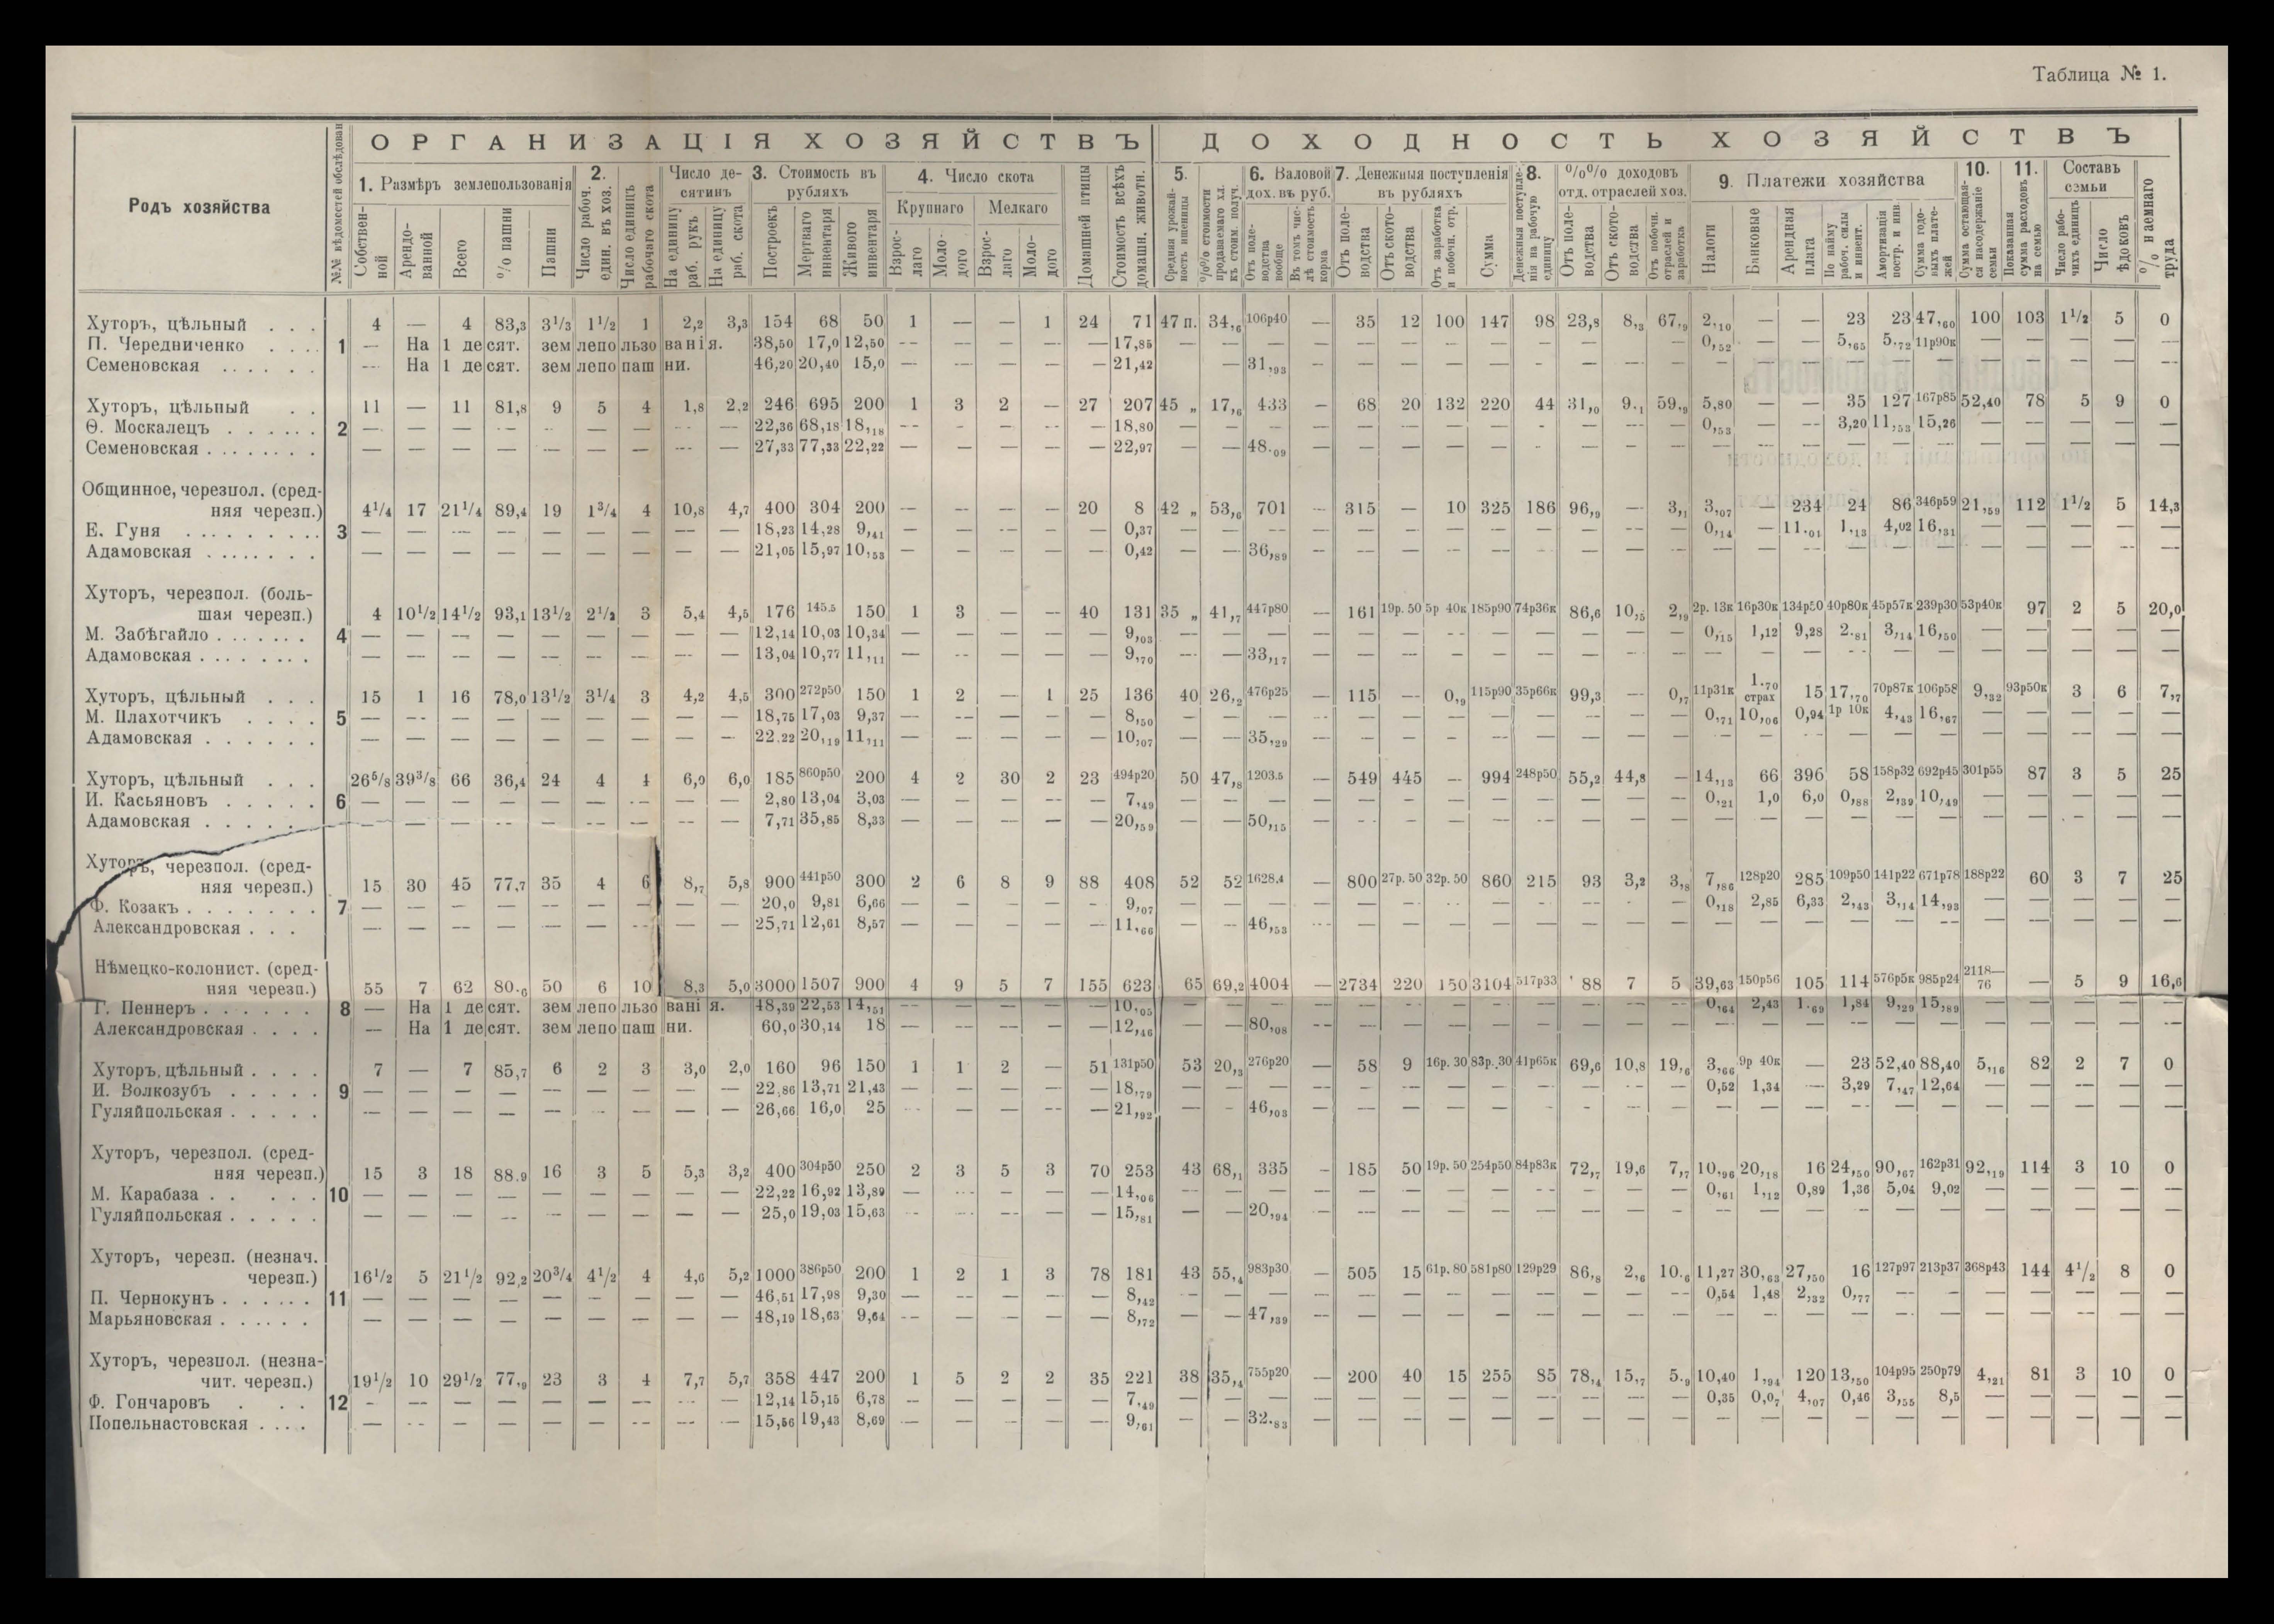 Таблица № 1.
ОРГАНИЗАЦІЯ ХОЗЯЙСТВЪ ДОХОДНОСТЬ ХОЗЯЙСТВЪ
Родъ хозяйства
№№ вѣдомостей обслѣдован
1. Размѣръ землепользованія
Собствен-ной
Арендо-ванной
Всего
% пашни
Пашни
2.
Число рабоч. един. въ хоз.
Число единицъ рабочаго скота
Число де-сятинъ
На единицу раб. рукъ
На единицу раб. скота
3. Стоимость въ рубляхъ
Построекъ
Мертваго инвентаря
Живого инвентаря
4. Число скота
Крупнаго
Мелкаго
Взрос-лаго
Моло-дого
Взрос-лаго
Моло-дого
Домашней птицы
Стоимость всѣхъ домашн. животн.
5.
Средняя урожай-ность пшеницы
%% стоимости продаваемаго хл. къ стоим. получ.
6. Валовой дох. въ руб.
Отъ поле-водства вообще
Въ томъ чис-лѣ стоимость корма
7. Денежныя поступленія въ рубляхъ
Отъ поле-водства
Отъ ското-водства
Отъ заработка и побочн. отр.
Сумма
8.
Денежныя поступле-нія на рабочую единицу
%% доходовъ отд. отраслей хоз.
Отъ поле-водства
Отъ ското-водства
Отъ побочн. отраслей и заработка
9. Платежи хозяйства
Налоги
Банковые
Арендная плата
По найму рабоч. силы и инвент.
Амортизація постр. и инв
Сумма годо-выхъ плате-жей
10.
Сумма остающая-ся на содержаніе семьи
11.
Показанная сумма расходовъ на семью
Составъ семьи
Число рабо-чихъ единицъ
Число ѣдоковъ
% наемнаго труда
Хуторъ, цѣльный . . . 4 — 4 83,3 3 1/3 1 1/2 1 2,2 3,3 154 68 50 1 — — 1 24 71 47 п. 34,6 106р40 — 35 12 100 147 98 23,8 8,3 67,9 2,10 — — 23 23 47,60 100 103 1 1/2 5 0
П. Чередниченко . . . . 1 — На 1 десят. землепользованія. 38,50 17,0 12,50 — — — — — 17,85 — — — — — — — — — — — — 0,52 — — 5,65 5,72 11р90к — — — — —
Семеновская . . . . . . — На 1 десят. землепо пашни. 46,20 20,40 15,0 — — — — — 21,42 — 31,93 — — — — — — — — — — — — — — — — — — — —
Хуторъ, цѣльный . . 11 — 11 81,8 9 5 4 1,8 2,2 246 695 200 1 3 2 — 27 207 45 „ 17,6 433 — 68 20 132 220 44 31,0 9,1 59,9 5,80 — — 35 127 167р85 52,40 78 5 9 0
Ѳ. Москалецъ . . . . . . 2 — — — — — — — — — 22,36 68,18 18,18 — — — — — 18,80 — — — — — — — — — — — — 0,53 — — 3,20 11,53 15,26 — — — — —
Семеновская . . . . . . . . — — — — — — — — — 27,33 77,33 22,22 — — — — — 22,97 — — 48,09 — — — — — — — — — — — — — — — — — — — —
Общинное, черезпол. (сред-
няя черезп.) 4 1/4 17 21 1/4 89,4 19 1 3/4 4 10,8 4,7 400 304 200 — — — — 20 8 42 „ 53,6 701 — 315 — 10 325 186 96,9 — 3,1 3,07 — 234 24 86 346р59 21,59 112 1 1/2 5 14,3
Е. Гуня . . . . . . . . . 3 — — — — — — — — — 18,23 14,28 9,41 — — — — — 0,37 — — — — — — — — — — — — 0,14 — 11,01 1,13 4,02 16,31 — — — — —
Адамовская . . . . . . . — — — — — — — — — 21,05 15,97 10,53 — — — — — 0,42 — — 36,89 — — — — — — — — — — — — — — — — — — — —
Хуторъ, черезпол. (боль-
шая черезп.) 4 10 1/2 14 1/2 93,1 13 1/2 2 1/2 3 5,4 4,5 176 145,5 150 1 3 — — 40 131 35 „ 41,7 447р80 — 161 19р. 50 5р 40к 185р90 74р36к 86,6 10,5 2,9 2р. 13к 16р30к 134р50 40р80к 45р57к 239р30 53р40к 97 2 5 20,0
М. Забѣгайло . . . . . . . 4 — — — — — — — — — 12,14 10,03 10,34 — — — — — 9,03 — — — — — — — — — — — — 0,15 1,12 9,28 2,81 3,14 16,50 — — — — —
Адамовская . . . . . . . . — — — — — — — — — 13,04 10,77 11,11 — — — — — 9,70 — — 33,17 — — — — — — — — — — — — — — — — — — — —
Хуторъ, цѣльный . . . 15 1 16 78,0 13 1/2 3 1/4 3 4,2 4,5 300 272р50 150 1 2 — 1 25 136 40 26,2 476р25 — 115 — 0,9 115р90 35р66к 99,3 — 0,7 11р31к 1.70 страх 15 17,70 70р87к 106р58 9,32 93р50к 3 6 7,7
М. Плахотчикъ . . . . 5 — — — — — — — — — 18,75 17,03 9,37 — — — — — 8,50 — — — — — — — — — — — — 0,71 10,06 0,94 1р 10к 4,43 16,67 — — — — —
Адамовская . . . . . . — — — — — — — — — 22.22 20,19 11,11 — — — — — 10,07 — — 35,29 — — — — — — — — — — — — — — — — — — — —
Хуторъ, цѣльный . . . 26 5/8 39 3/8 66 36,4 24 4 4 6,0 6,0 185 860р50 200 4 2 30 2 23 494р20 50 47,8 1203.5 — 549 445 — 994 248р50 55,2 44,8 — 14,13 66 396 58 158р32 692р45 301р55 87 3 5 25
И. Касьяновъ . . . . . 6 — — — — — — — — — 2,80 13,04 3,03 — — — — — 7,49 — — — — — — — — — — — — 0,21 1,0 6,0 0,88 2,39 10,49 — — — — —
Адамовская . . . . . — — — — — — — — — 7,71 35,85 8,33 — — — — — 20,59 — — 50,15 — — — — — — — — — — — — — — — — — — — —
Хуторъ, черезпол. (сред-
няя черезп.) 15 30 45 77,7 35 4 6 8,7 5,8 900 441р50 300 2 6 8 9 88 408 52 52 1628.4 — 800 27р. 50 32р. 50 860 215 93 3,2 3,8 7,86 128р20 285 109р50 141р22 671р78 188р22 60 3 7 25
Ф. Козакъ . . . . . . . 7 — — — — — — — — — 20,0 9,81 6,66 — — — — — 9,07 — — — — — — — — — — — — 0,18 2,85 6,33 2,43 3,14 14,93 — — — — —
Александровская . . . — — — — — — — — — 25,71 12,61 8,57 — — — — — 11,66 — — 46,53 — — — — — — — — — — — — — — — — — — — —
Нѣмецко-колонист. (сред-
няя черезп.) 55 7 62 80.6 50 6 10 8,3 5,0 3000 1507 900 4 9 5 7 155 623 65 69,2 4004 — 2734 220 150 3104 517р33 88 7 5 39,63 150р56 105 114 576р5к 985р24 2118—76 — 5 9 16,6
Г. Пеннеръ . . . . . . 8 — На 1 десят. землепользованія. 48,39 22,53 14,51 — — — — — 10,05 — — — — — — — — — — — — 0,64 2,43 1,69 1,84 9,29 15,89 — — — — —
Александровская . . . . — На 1 десят. землепо пашни. 60,0 30,14 18 — — — — — 12,46 — — 80,08 — — — — — — — — — — — — — — — — — — — —
Хуторъ, цѣльный . . . . 7 — 7 85,7 6 2 3 3,0 2,0 160 96 150 1 1 2 — 51 131р50 53 20,3 276р20 — 58 9 16р. 30 83р. 30 41р65к 69,6 10,8 19,6 3,66 9р 40к — 23 52,40 88,40 5,16 82 2 7 0
И. Волкозубъ . . . . . 9 — — — — — — — — — 22,86 13,71 21,43 — — — — — 18,79 — — — — — — — — — — — — 0,52 1,34 — 3,29 7,47 12,64 — — — — —
Гуляйпольская . . . . . — — — — — — — — — 26,66 16,0 25 — — — — — 21,92 — — 46,03 — — — — — — — — — — — — — — — — — — — —
Хуторъ, черезпол. (сред-
няя черезп.) 15 3 18 88.9 16 3 5 5,3 3,2 400 304р50 250 2 3 5 3 70 253 43 68,1 335 — 185 50 19р. 50 254р50 84р83к 72,7 19,6 7,7 10,96 20,18 16 24,50 90,67 162р31 92,19 114 3 10 0
М. Карабаза . . . . . 10 — — — — — — — — — 22,22 16,92 13,89 — — — — — 14,06 — — — — — — — — — — — — 0,61 1,12 0,89 1,36 5,04 9,02 — — — — —
Гуляйпольская . . . . . — — — — — — — — — 25,0 19,03 15,63 — — — — — 15,81 — — 20,94 — — — — — — — — — — — — — — — — — — — —
Хуторъ, черезп. (незнач.
черезп.) 16 1/2 5 21 1/2 92,2 20 3/4 4 1/2 4 4,6 5,2 1000 386р50 200 1 2 1 3 78 181 43 55,4 983р30 — 505 15 61р. 80 581р80 129р29 86,8 2,6 10.6 11,27 30,63 27,50 16 127р97 213р37 368р43 144 4 1/2 8 0
П. Чернокунъ . . . . . . 11 — — — — — — — — — 46,51 17,98 9,30 — — — — — 8,42 — — — — — — — — — — — — 0,54 1,48 2,32 0,77 — — — — — — —
Марьяновская . . . . . . — — — — — — — — — 48,19 18,63 9,64 — — — — — 8,72 — — 47,39 — — — — — — — — — — — — — — — — — — — —
Хуторъ, черезпол. (незна-
чит. черезп.) 19 1/2 10 29 1/2 77,9 23 3 4 7,7 5,7 358 447 200 1 5 2 2 35 221 38 35,4 755р20 — 200 40 15 255 85 78,4 15,7 5.9 10,40 1,94 120 13,50 104р95 250р79 4,21 81 3 10 0
Ф. Гончаровъ . . . 12 — — — — — — — — — 12,14 15,15 6,78 — — — — — 7,49 — — — — — — — — — — — — 0,35 0,07 4,07 0,46 3,55 8,5 — — — — —
Попельнастовская . . . . — — — — — — — — — 15,56 19,43 8,69 — — — — — 9,61 — — 32.83 — — — — — — — — — — — — — — — — — — — —